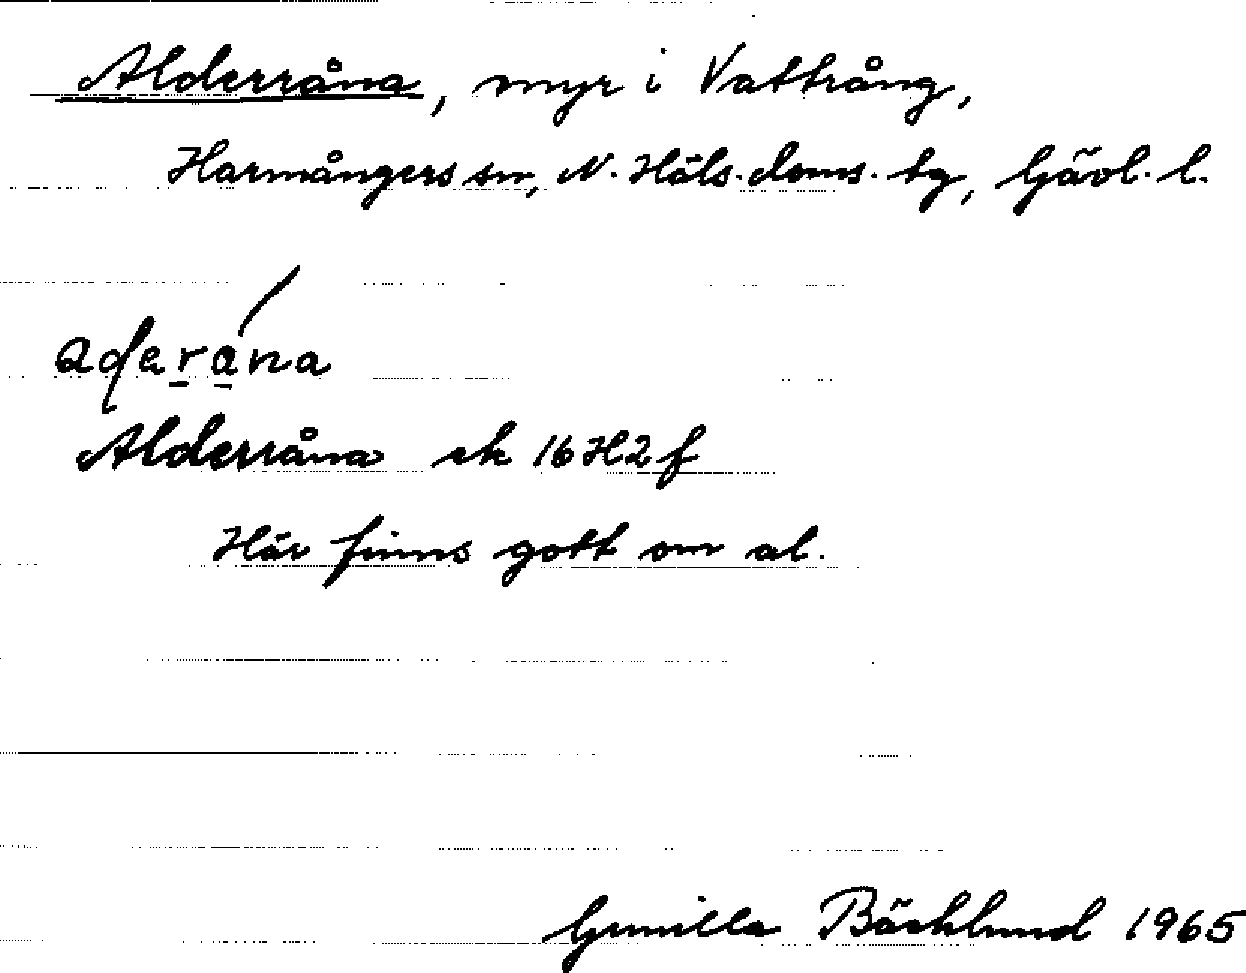 Alderråna, myr i Vattrång,
Harmångers sn, N. Häls. doms. tg, Gävl. l.
Alderråna ek 16H2f
Här finns gott om al.
Gunilla Bäcklund 1965